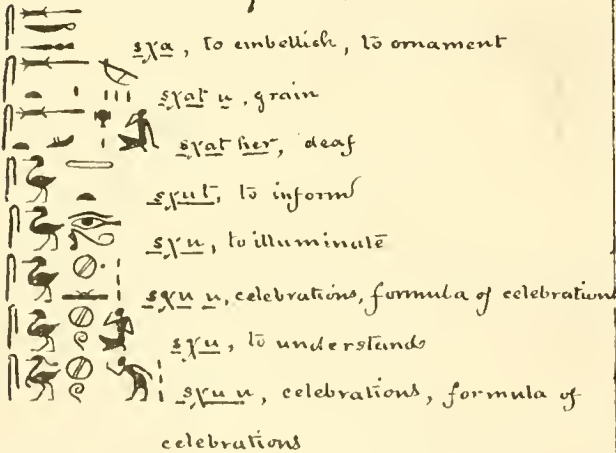 sχa, to embellish, to ornament
sχat u, grain
sχat her, deaf
sχut, to inform
sχu, to illuminate
sχu u, celebrations, formula of celebrations
sχu, to understand
sχu u, celebrations, formula of
celebrations